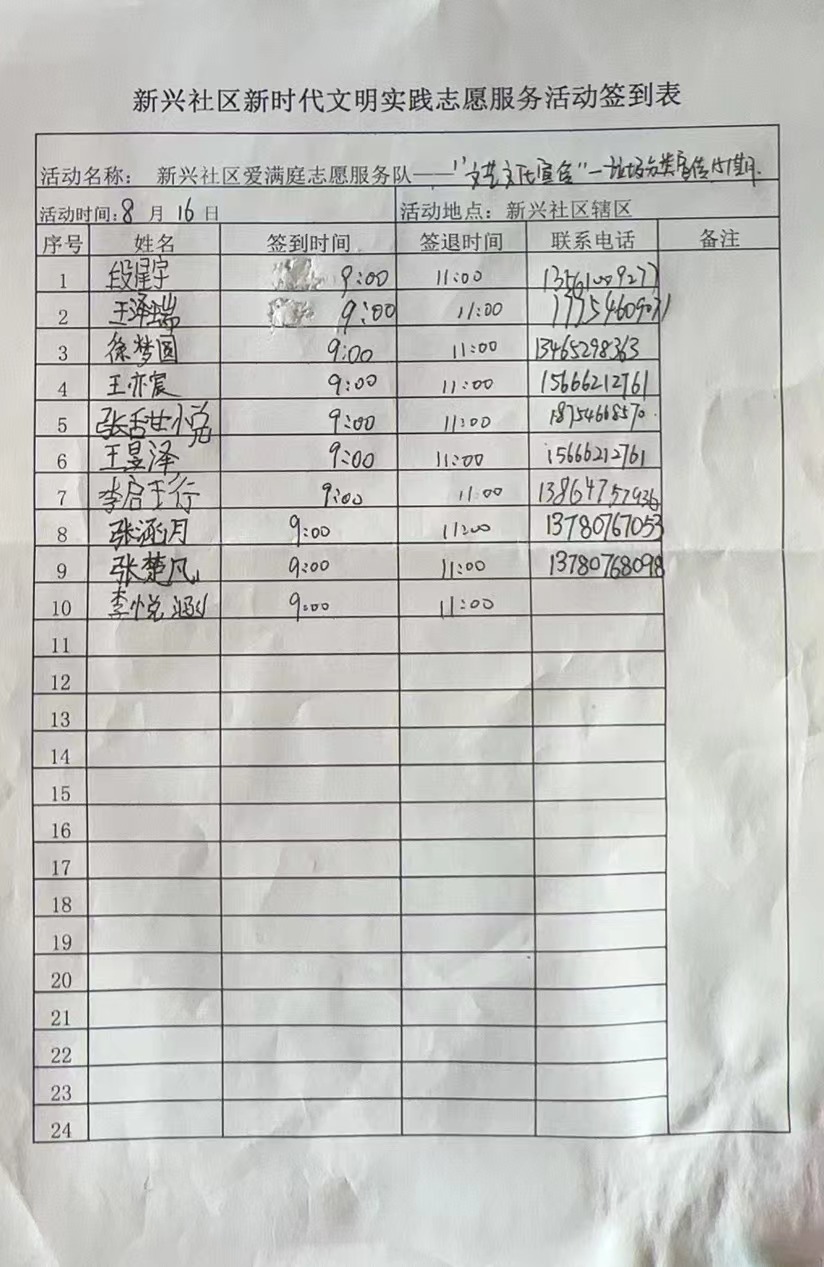 新兴社区新时代文明实践志愿服务活动签到表
活动名称: 新兴社区爱满庭志愿服务队——"文艺文化宣传"—垃圾分类宣传
活动时间:8 月 16 日 活动地点:新兴社区辖区
序号 姓名 签到时间 签退时间 联系电话 备注
1 段星宇 9:00 11:00 13561009277
2 王泽瑞 9:00 11:00
3 徐梦圆 9:00 11:00 13465298363
4 王亦宸 9:00 11:00 15666212761
5 张 9:00 11:00 18754668570
6 王昱泽 9:00 11:00 15666212761
7 李启 9:00 11:00 13864757936
8 张涵月 9:00 11:00 13780767053
9 张楚凡 9:00 11:00 13780768098
10 李悦涵 9:00 11:00
11
12
13
14
15
16
17
18
19
20
21
22
23
24